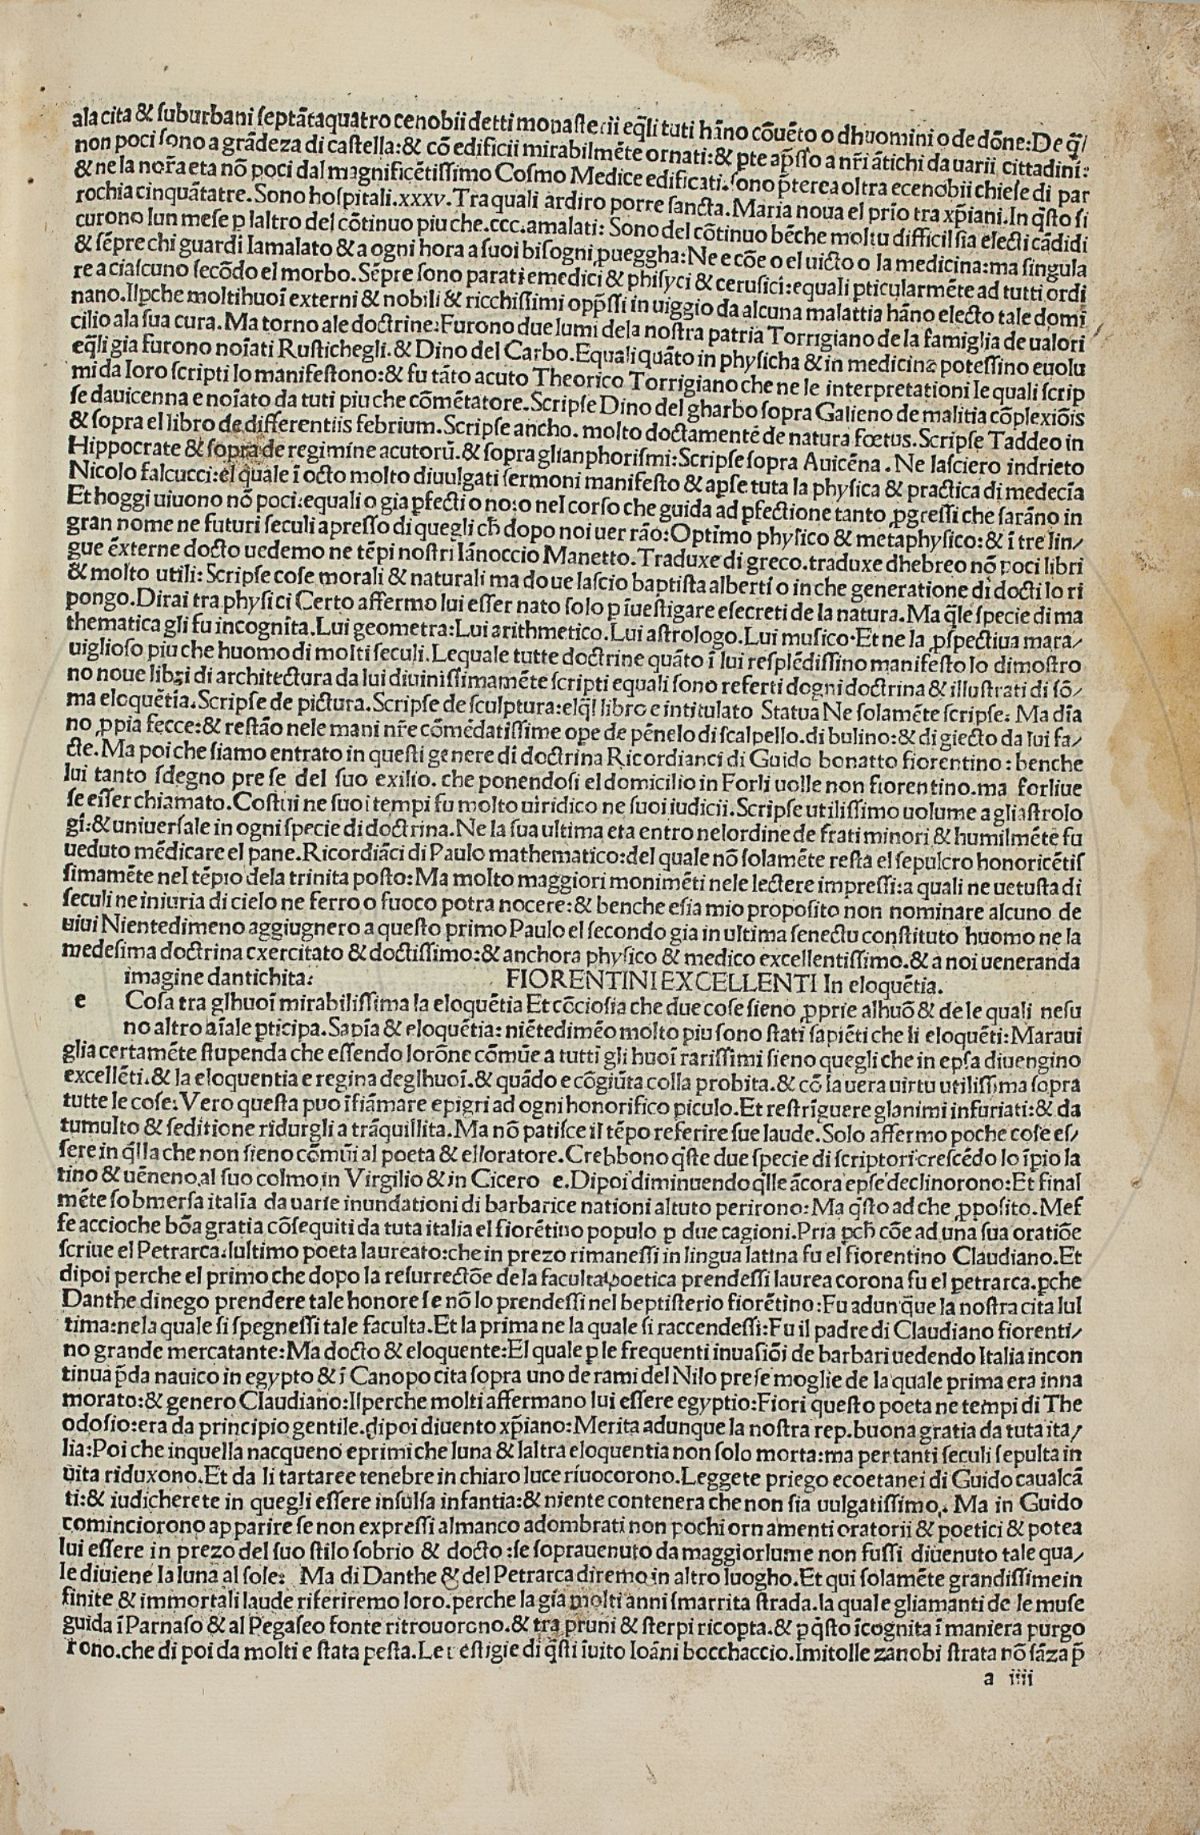 ala cita & suburbani septãtaquatro cenobii detti monasterii eq̃li tuti hãno cõuẽto o dhuomini o de dõne: De q̃/
non poci sono a grãdeza di castella: & cõ edificii mirabilmẽte ornati: & pte ap̃sso a nr̃i ãtichi da uarii cittadini:
& ne la nor̃a eta nõ poci dal magnificẽtissimo Cosmo Medice edificati. sono p̃terea oltra ecenobii chiese di par
rochia cinquãtatre. Sono hospitali.xxxv. Tra quali ardiro porre sancta. Maria noua el prĩo tra xp̃iani. In q̃sto si
curono lun mese p laltro del cõtinuo piu che.ccc.amalati: Sono del cõtinuo bẽche moltu difficil sia electi cãdidi
& sẽpre chi guardi lamalato & a ogni hora a suoi bisogni ꝓueggha: Ne e cõe o el uicto o la medicina: ma singula
re a ciascuno secõdo el morbo. Sẽpre sono parati emedici & phisyci & cerusici: equali pticularmẽte ad tutti ordi
nano. Ilpche molti huoĩ externi & nobili & ricchissimi opp̃ssi in uiggio da alcuna malattia hãno electo tale domĩ
cilio ala sua cura. Ma torno ale doctrine: Furono due lumi dela nostra patria Torrigiano de la famiglia de ualori
eq̃li gia furono noĩati Rustichegli. & Dino del Carbo. Equali quãto in physicha & in medicina potessino euolu
mi da loro scripti lo manifestono: & fu tãto acuto Theorico Torrigiano che ne le interpretationi le quali scrip
se dauicenna e noĩato da tuti piu che cõmẽtatore. Scripse Dino del gharbo sopra Galieno de malitia cõplexiõis
& sopra el libro de differentiis febrium. Scripse ancho. molto doctamentẽ de natura fœtus. Scripse Taddeo in
Hippocrate & sopra de regimine acutorũ. & sopra glianphorismi: Scripse sopra Auicẽna. Ne lasciero indrieto
Nicolo falcucci: el quale ĩ octo molto diuulgati sermoni manifesto & apse tuta la physica & practica di medecĩa
Et hoggi uiuono nõ poci: equali o gia pfecti o no: o nel corso che guida ad pfectione tanto ꝓgressi che sarãno in
gran nome ne futuri seculi apresso di quegli ch̃ dopo noi uer rão: Optimo physico & metaphysico: & ĩ tre lin/
gue ẽxterne docto uedemo ne tẽpi nostri Iãnoccio Manetto. Traduxe di greco. traduxe dhebreo nõ poci libri
& molto utili: Scripse cose morali & naturali ma doue lascio baptista alberti o in che generatione di docti lo ri
pongo. Dirai tra physici Certo affermo lui esser nato solo p ĩuestigare esecreti de la natura. Ma q̃le specie di ma
thematica gli fu incognita. Lui geometra: Lui arithmetico. Lui astrologo. Lui musico. Et ne la ꝓspectiua mara/
uiglioso piu che huomo di molti seculi. Lequale tutte doctrine quãto ĩ lui resplẽdissino manifesto lo dimostro
no noue libri di architectura da lui diuinissimamẽte scripti equali sono referti dogni doctrina & illustrati di sõ/
ma eloquẽtia. Scripse de pictura. Scripse de sculptura: elq̃l libro e intitulato Statua Ne solamẽte scripse: Ma dĩa
no ꝓpia fecce: & restão nele mani nr̃e cõmẽdatissime ope de pẽnelo di scalpello. di bulino: & di giecto da lui fa/
cte. Ma poi che siamo entrato in questi genere di doctrina Ricordianci di Guido bonatto fiorentino: benche
lui tanto sdegno prese del suo exilio. che ponendosi el domicilio in Forli uolle non fiorentino. ma forliue
se esser chiamato. Costui ne suoi tempi fu molto uiridico ne suoi iudicii. Scripse utilissimo uolume a gliastrolo
gi: & uniuersale in ogni specie di doctrina. Ne la sua ultima eta entro nelordine de frati minori & humilmẽte fu
ueduto mẽdicare el pane. Ricordiãci di Paulo mathematico: del quale nõ solamẽte resta el sepulcro honoricẽtis
simamẽte nel tẽpio dela trinita posto: Ma molto maggiori monimẽti nele lectere impressi: a quali ne uetusta di
seculi ne iniuria di cielo ne ferro o fuoco potra nocere: & benche esia mio proposito non nominare alcuno de
uiui Nientedimeno aggiugnero a questo primo Paulo el secondo gia in ultima senectu constituto huomo ne la
medesima doctrina exercitato & doctissimo: & anchora physico & medico excellentissimo. & a noi ueneranda
imagine dantichita: FIORENTINI EXCELLENTI In eloquẽtia.
e Cosa tra glhuoĩ mirabilissima la eloquẽtia Et cõciosia che due cose sieno ꝓprie alhuõ & de le quali nesu
no altro aĩale pticipa. Sapiã & eloquẽtia: niẽtedimẽo molto piu sono stati sapiẽti che li eloquẽti: Maraui
glia certamẽte stupenda che essendo lorõne cõmũe a tutti gli huoĩ rarissimi sieno quegli che in epsa diuengino
excellẽti. & la eloquentia e regina deglhuoĩ. & quãdo e cõgiũta colla probita. & cõ la uera uirtu utilissima sopra
tutte le cose: Vero questa puo ĩfiãmare epigri ad ogni honorifico piculo. Et restrĩguere glanimi infuriati: & da
tumulto & seditione ridurgli a trãquillita. Ma nõ patisce il tẽpo referire sue laude. Solo affermo poche cose es/
sere in q̃lla che non sieno cõmũi al poeta & elloratore. Crebbono q̃ste due specie di scriptori crescẽdo lo ĩpio la
tino & uẽneno al suo colmo in Virgilio & in Cicero e. Dipoi diminuendo q̃lle ãcora epse declinorono: Et final
mẽte sobmersa italia da uarie inundationi di barbarice nationi altuto perirono: Ma q̃sto ad che ꝓposito. Mef
fe accioche bõa gratia cõsequiti da tuta italia el fiorẽtino populo p due cagioni. Pria pch̃ cõe ad una sua oratiõe
scriue el Petrarca. lultimo poeta laureato: che in prezo rimanessi in lingua latina fu el fiorentino Claudiano. Et
dipoi perche el primo che dopo la resurrectõe de la faculta poetica prendessi laurea corona fu el petrarca. pche
Danthe dinego prendere tale honore se nõ lo prendessi nel beptisterio fiorẽtino: Fu adunq̃ue la nostra cita lul
tima: nela quale si spegnessi tale faculta. Et la prima ne la quale si raccendessi: Fu il padre di Claudiano fiorenti/
no grande mercatante: Ma docto & eloquente: El quale p le frequenti inuasiõi de barbari uedendo Italia incon
tinua p̃da nauico in egypto & ĩ Canopo cita sopra uno de rami del Nilo prese moglie de la quale prima era inna
morato: & genero Claudiano: Ilperche molti affermano lui essere egyptio: Fiori questo poeta ne tempi di The
odosio: era da principio gentile. dipoi diuento xp̃iano: Merita adunque la nostra rep. buona gratia da tuta ita/
lia: Poi che inquella nacqueno eprimi che luna & laltra eloquentia non solo morta: ma per tanti seculi sepulta in
uita riduxono. Et da li tartaree tenebre in chiaro luce riuocorono. Leggete priego ecoetanei di Guido caualcã
ti: & iudicherete in quegli essere insulsa infantia: & niente contenera che non sia uulgatissimo. Ma in Guido
cominciorono apparire se non expressi almanco adombrati non pochi ornamenti oratorii & poetici & potea
lui essere in prezo del suo stilo sobrio & docto: se soprauenuto da maggior lume non fussi diuenuto tale qua/
le diuiene la luna al sole: Ma di Danthe & del Petrarca diremo in altro luogho. Et qui solamẽte grandissime in
finite & immortali laude riferiremo loro. perche la gia molti anni smarrita strada. la quale gliamanti de le muse
guida ĩ Parnaso & al Pegaseo fonte ritrouorono. & tra pruni & sterpi ricopta. & p q̃sto ĩcognita ĩ maniera purgo
rono. che di poi da molti e stata pesta. Le uestigie di q̃sti ĩuito Ioãni bocchaccio. Imitolle zanobi strata nõ sãza p̃
a iiii